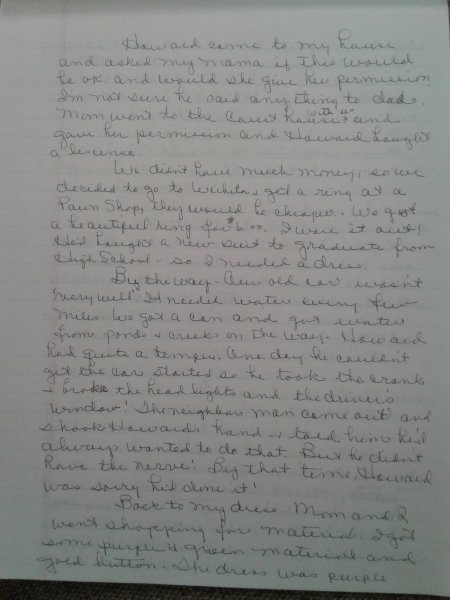 Howard came to my house
and asked my mama if this would
be ok. and would she give her permission.
I'm not sure he said anything to dad.
Mom went to the Court house with us and
gave her permission and Howard bought
a lisense.
We didn't have much money, so we
decided to go to Wichita & get a ring at a
Pawn Shop, they would be cheaper. We got
a beautiful ring for $6.00. I wore it out!
He'd bought a new suit to graduate from
High School - so I needed a dress.
By the way - Our old car wasn't
very well. It needed water every few
miles. We got a can and got water
from ponds & creeks on the way. Howard
had quite a temper. One day he couldn't
get the car started so he took the crank
& broke the head lights and the driver's
window! The neighbor man came out and
shook Howard's hand & told him he'd
always wanted to do that. But he didn't
have the nerve! By that time, Howard
was sorry he'd done it!
Back to my dress. Mom and I
went shopping for material. I got
some purple & green material and
gold button. The dress was purple